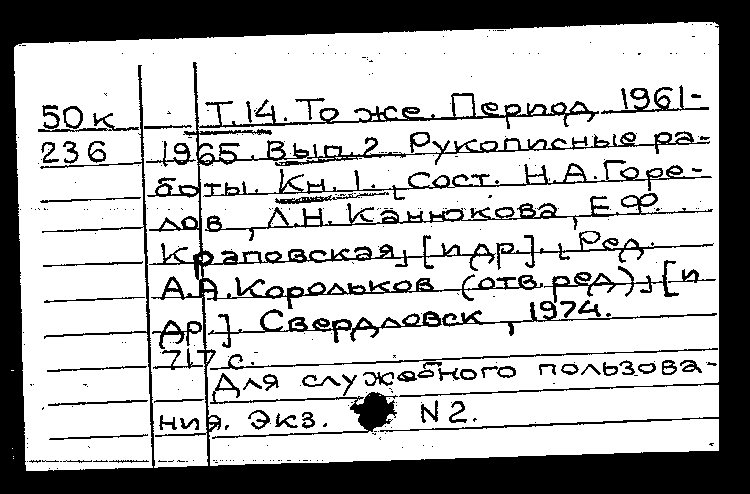 50к Т.14. То же. Период 1961-
236 1965. Вып. 2 Рукописные ра-
боты. Кн. 1. [Сост. Н.А. Горе-
лов, Л.Н. Канюкова, Е.Ф.
Краповская], [и др.]. [Ред.
А.А. Корольков (отв. ред)], [и
др.]. Свердловск, 1974.
717 с.
Для служебного пользова-
ния. Экз. N 2.